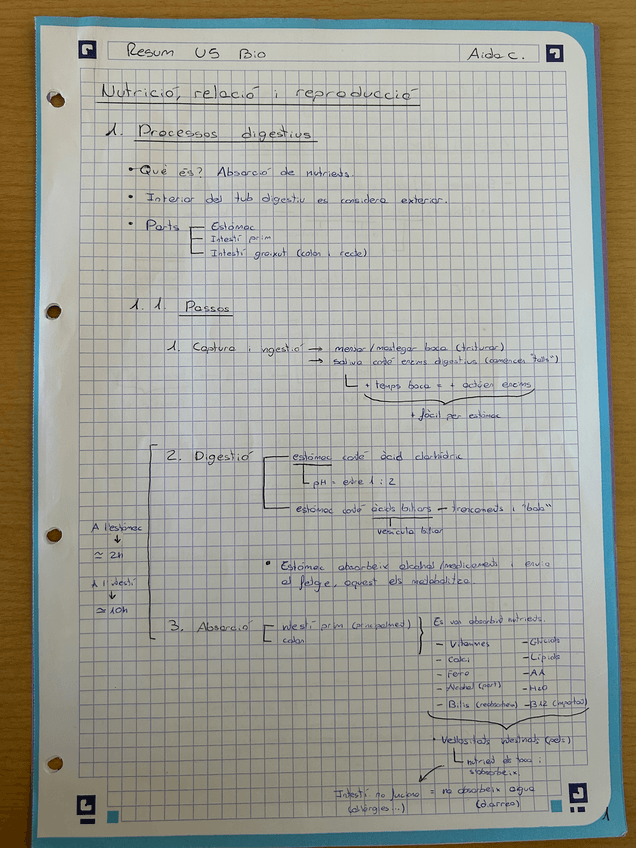 Resum U5 Bio
Aida C.
Nutrició, relació i reproducció
1. Processos digestius
• Què és? Absorció de nutrients.
• Interior del tub digestiu es considera exterior.
• Parts
Estómac
Intestí prim
Intestí graixut (colon i recte)
1.1. Passos
1. Captura i ingestió → menjar/mastegar boca (triturar)
→ saliva conté enzims digestius (comences "talls")
+ temps boca = + actúen enzims
+ fàcil per estómac
2. Digestió
estómac conté àcid clorhídric
pH = entre 1 i 2
estómac conté àcids biliars — trencaments i "bola"
vesícula biliar
• Estómac absorbeix alcohol/medicaments i envia
al fetge, aquest els metabolitza.
A l'estómac
↓
≃ 2h
A l'intestí
↓
≃ 10h
3. Absorció
intestí prim (principalment)
colon
Es van absorbint nutrients.
- Vitamines - Glúcids
- Calci - Lípids
- Ferro - AA
- Alcohol (part) - H2O
- Bilis (reabsorbeix) - B12 (important)
• Vellositats intestinals (pèls)
nutrient els toca i
s'absorbeix.
Intestí no funciona = no absorbeix aigua
(al·lèrgies...) (diarrea)
1